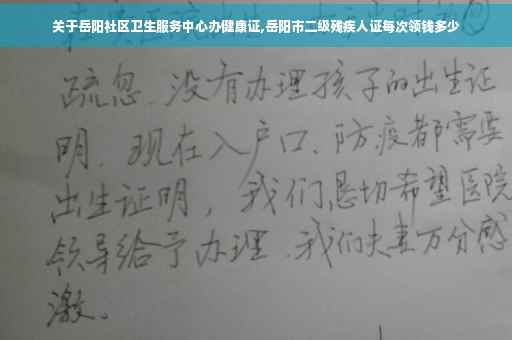 关于岳阳社区卫生服务中心办健康证,岳阳市二级残疾人证每次领钱多少
疏忽、没有办理孩子的出生证
明、现在入户口、防疫都需要
出生证明，我们恳切希望医院
领导给予办理、我们夫妻万分感
激。